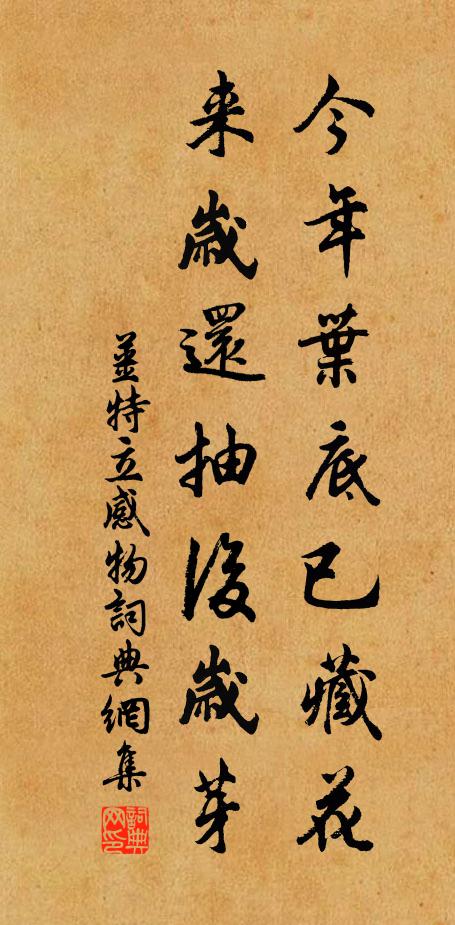 今年葉底已藏花
来歲還抽後歲芽
姜特立感物詞典網集
詞典網印